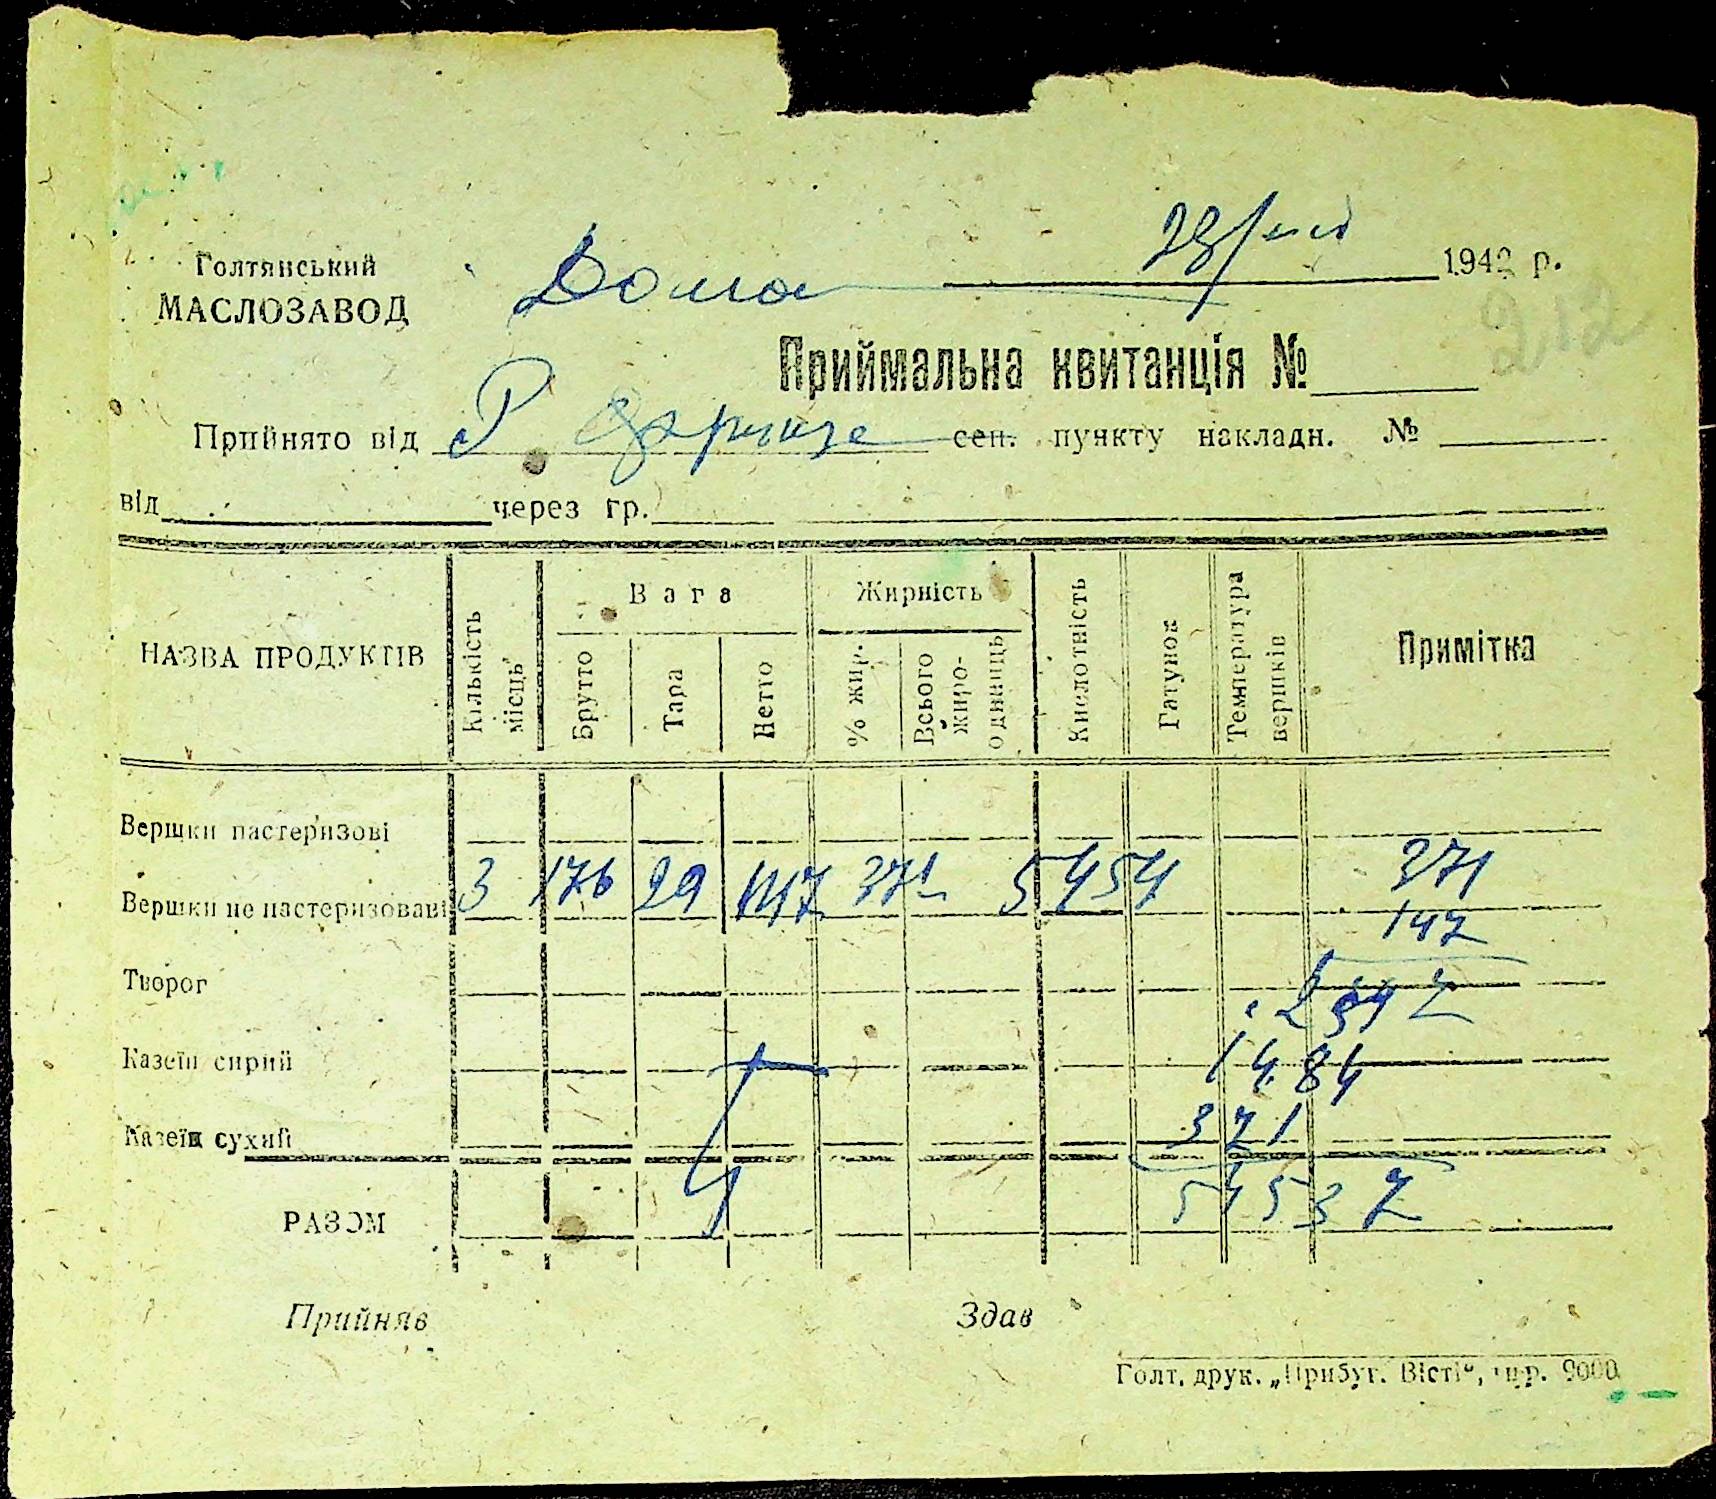 Голтянський
МАСЛОЗАВОД
Дома 28/ 1942 р.
212
Приймальна квитанція №
Прийнято від Р сеп. пункту накладн. №
від через гр.
НАЗВА ПРОДУКТІВ Кількість місць Вага Брутто Тара Нетто Жирність % жир. Всього жиро-одиниць Кислотність Гатунок Температура вершків Примітка
Вершки пастеризові
Вершки не пастеризовані 3 176 29 147 371 5454 371
147
Творог 2597
Казеїн сирий 1484
Казеїн сухий 371
РАЗОМ 54537
Прийняв Здав
Голт. друк. „Прибуг. Вісті“, тир. 9000